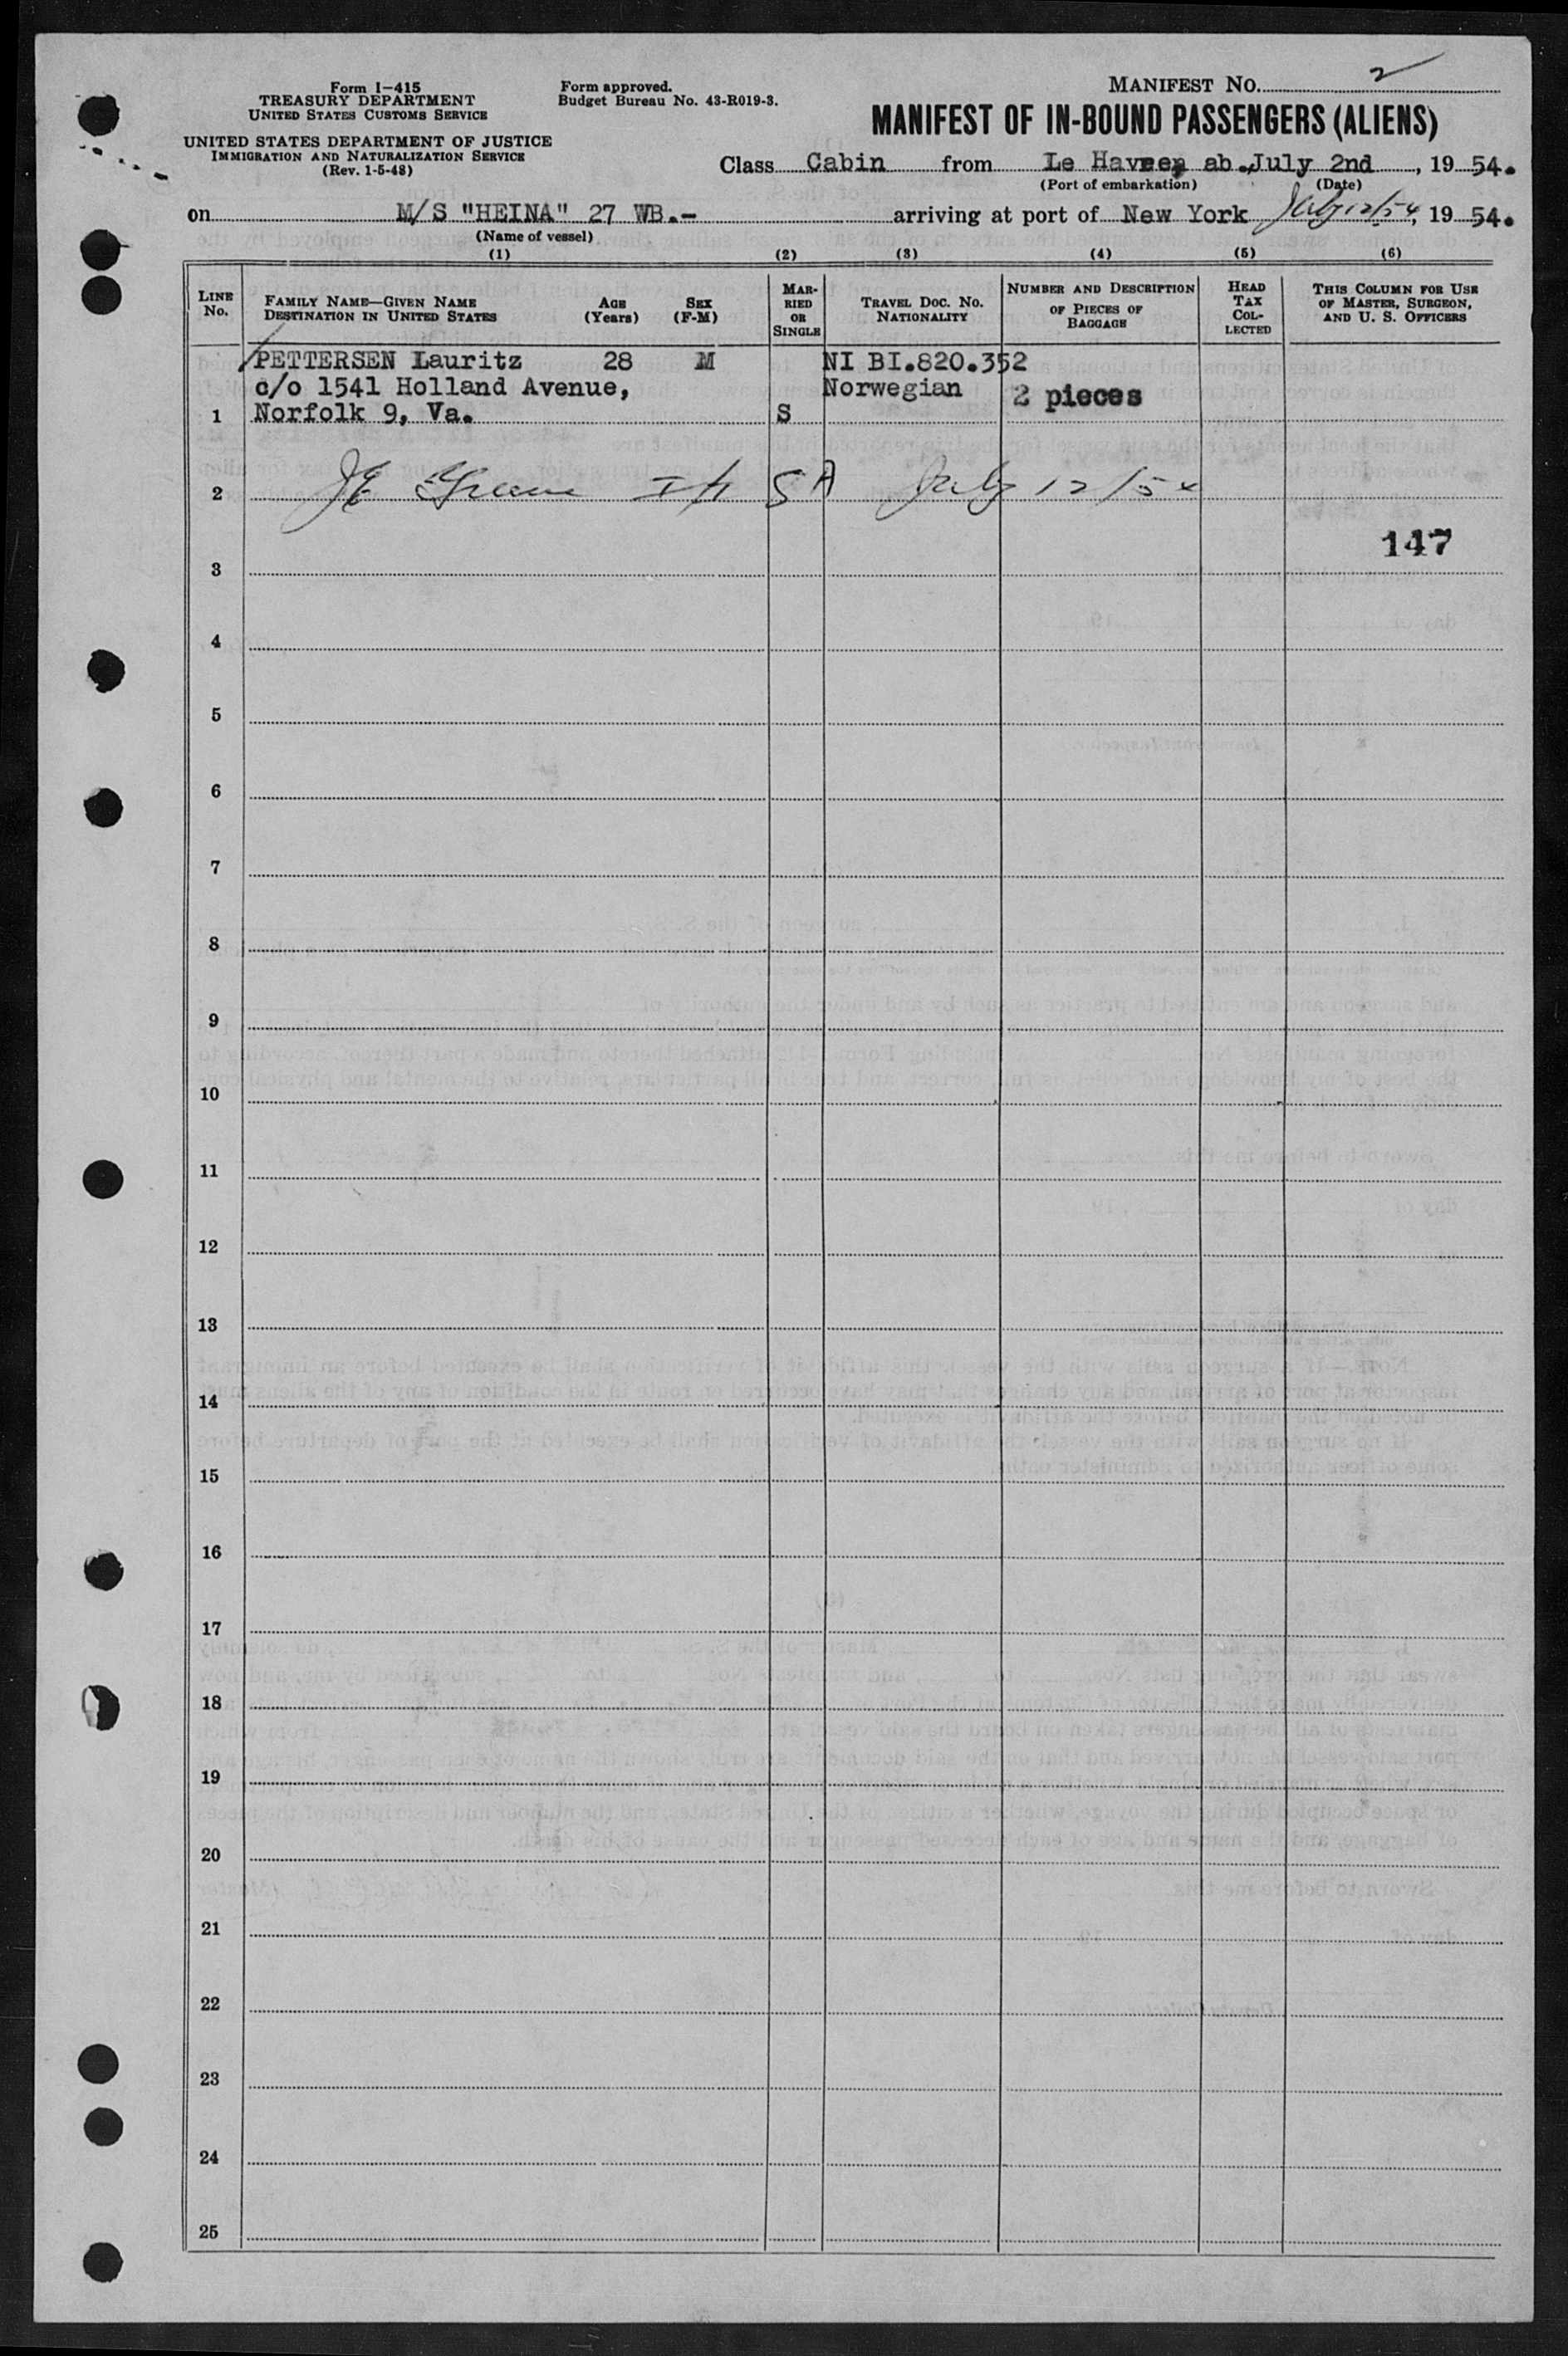 Form I-415
TREASURY DEPARTMENT
UNITED STATES CUSTOMS SERVICE
UNITED STATES DEPARTMENT OF JUSTICE
IMMIGRATION AND NATURALIZATION SERVICE
(Rev. 1-5-48)
Form approved.
Budget Bureau No. 43-R019-3.
MANIFEST NO. 2
MANIFEST OF IN-BOUND PASSENGERS (ALIENS)
Class Cabin from Le Havre, ab. July 2nd, 1954.
(Port of embarkation) (Date)
on M/S "HEINA" 27 WB.- arriving at port of New York July 12/54, 1954.
(Name of vessel)
(1) (2) (3) (4) (5) (6)
LINE No.
FAMILY NAME—GIVEN NAME
DESTINATION IN UNITED STATES
AGE (Years)
SEX (F-M)
MARRIED OR SINGLE
TRAVEL DOC. NO.
NATIONALITY
NUMBER AND DESCRIPTION
OF PIECES OF
BAGGAGE
HEAD TAX COLLECTED
THIS COLUMN FOR USE
OF MASTER, SURGEON,
AND U. S. OFFICERS
PETTERSEN Lauritz 28 M NI BI.820.352
c/o 1541 Holland Avenue, Norwegian 2 pieces
1 Norfolk 9, Va. S
2 Greene July 12/54
147
3
4
5
6
7
8
9
10
11
12
13
14
15
16
17
18
19
20
21
22
23
24
25